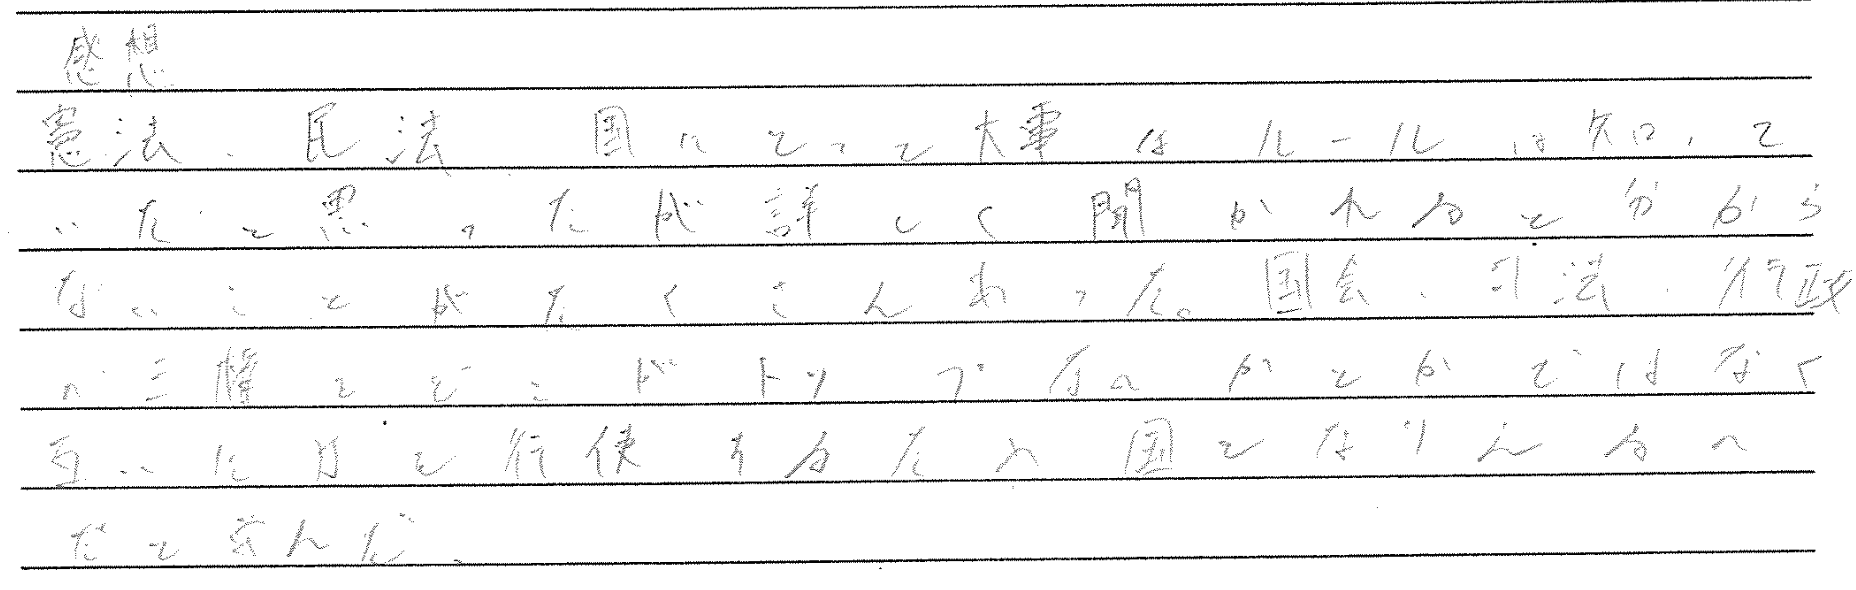 感想
憲法、民法 国にとって大事なルールは知って
いたと思ったが詳しく聞かれると分から
ないことがたくさんあった。国会、司法、行政
の三権はどこがトップなのかとかではなく
互いに 行使するため国となりえるの
だと学んだ。